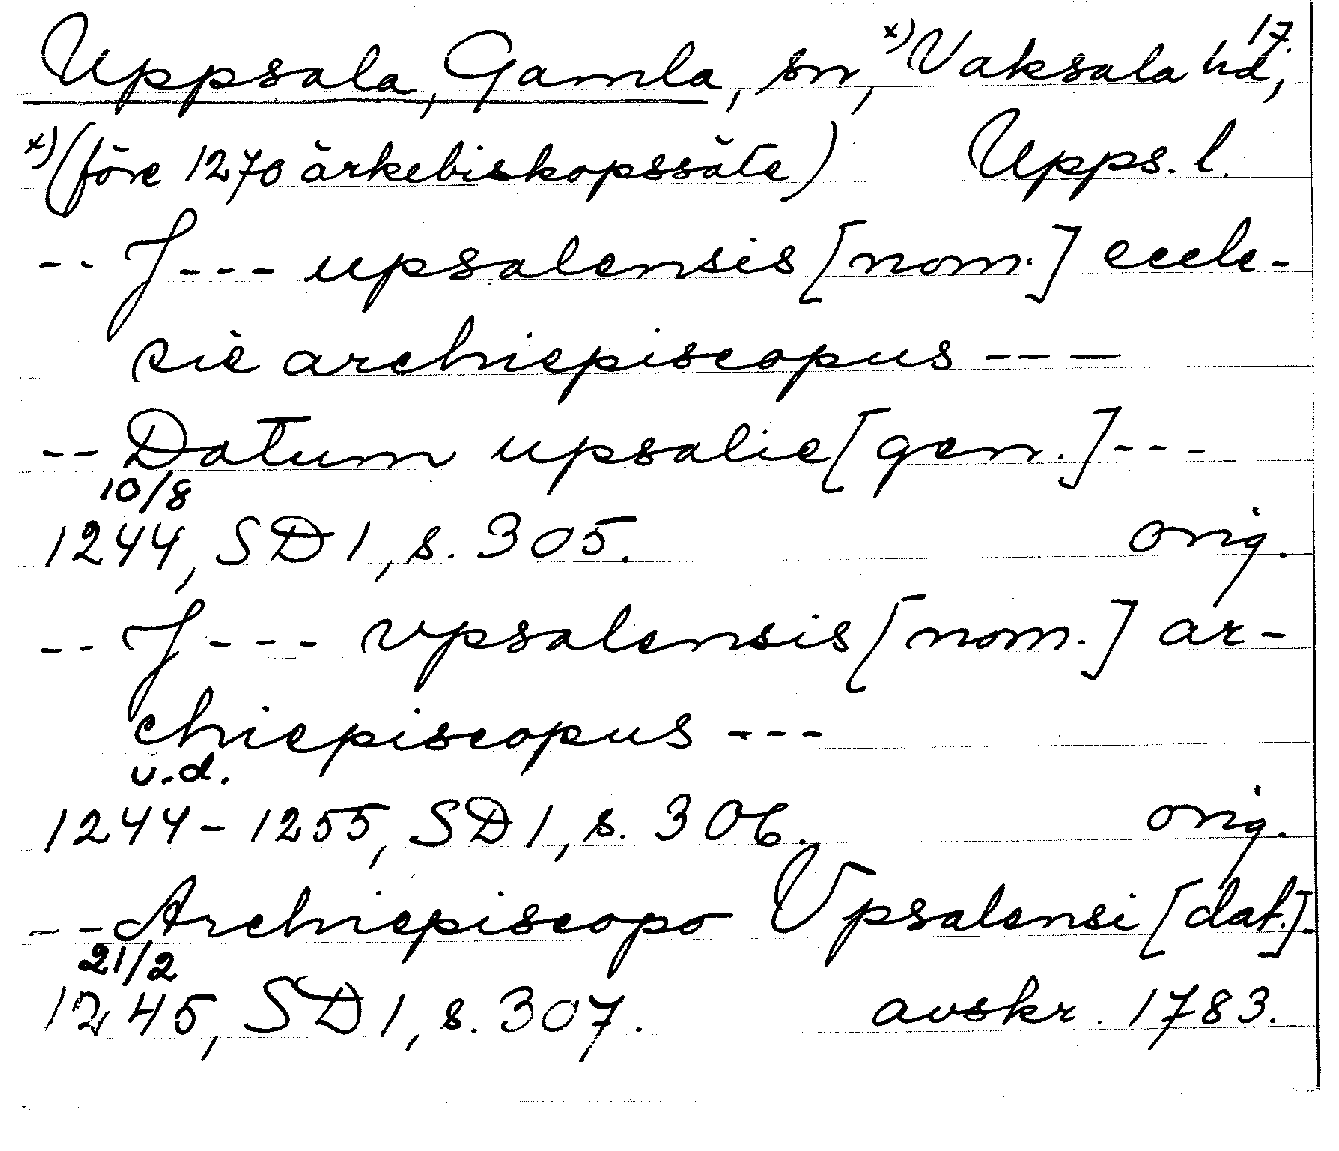 17.
Uppsala, Gamla, sn, x) Vaksala hd,
x) (före 1270 ärkebiskopssäte) Upps. l.
-- J --- upsalensis [nom.] eccle-
sie archiepiscopus ---
-- Datum upsalie [gen.] ---
10/8
1244, SD 1, s. 305. orig.
-- J --- vpsalensis [nom.] ar-
chiepiscopus ---
u.d.
1244-1255, SD 1, s. 306. orig.
-- Archiepiscopo Vpsalensi [dat.]-
21/2
1245, SD 1, s. 307. avskr. 1783.